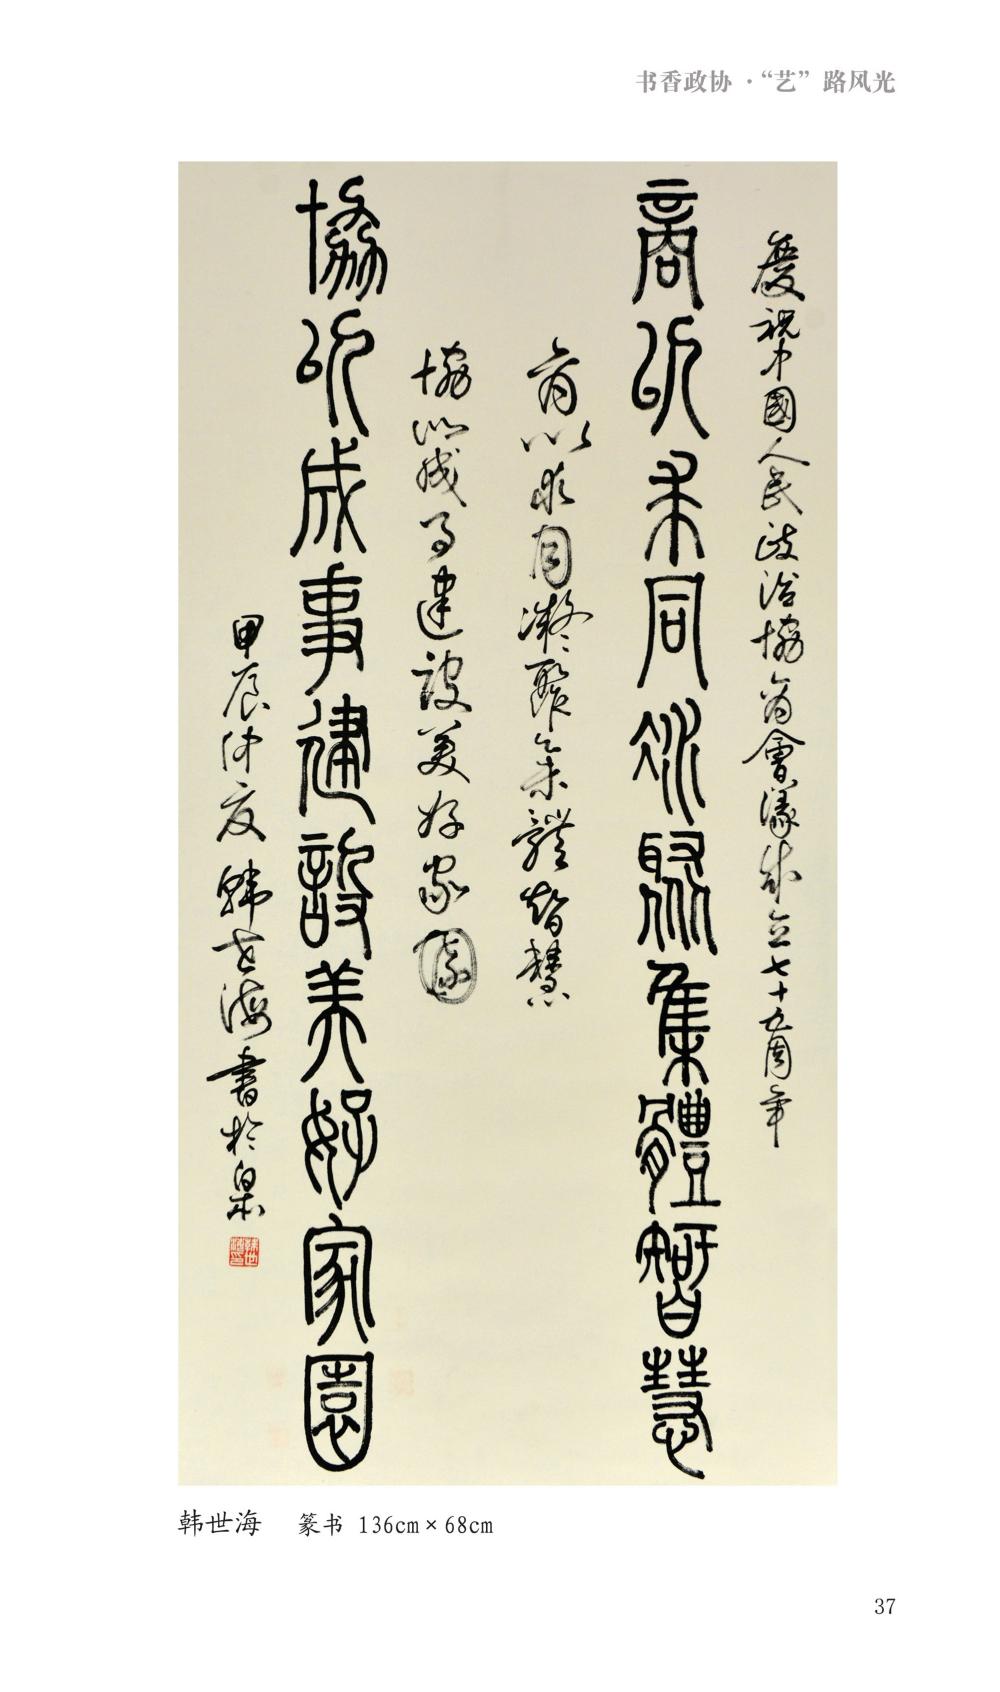 书香政协·“艺”路风光
慶祝中國人民政治協商會議成立七十五周年
商以求同凝聚集體智慧
商以求同凝聚集體智慧
協以成事建設美好家園
協以成事建設美好家園
甲辰仲夏韓世海書於泉
韩世海 篆书 136cm×68cm
37